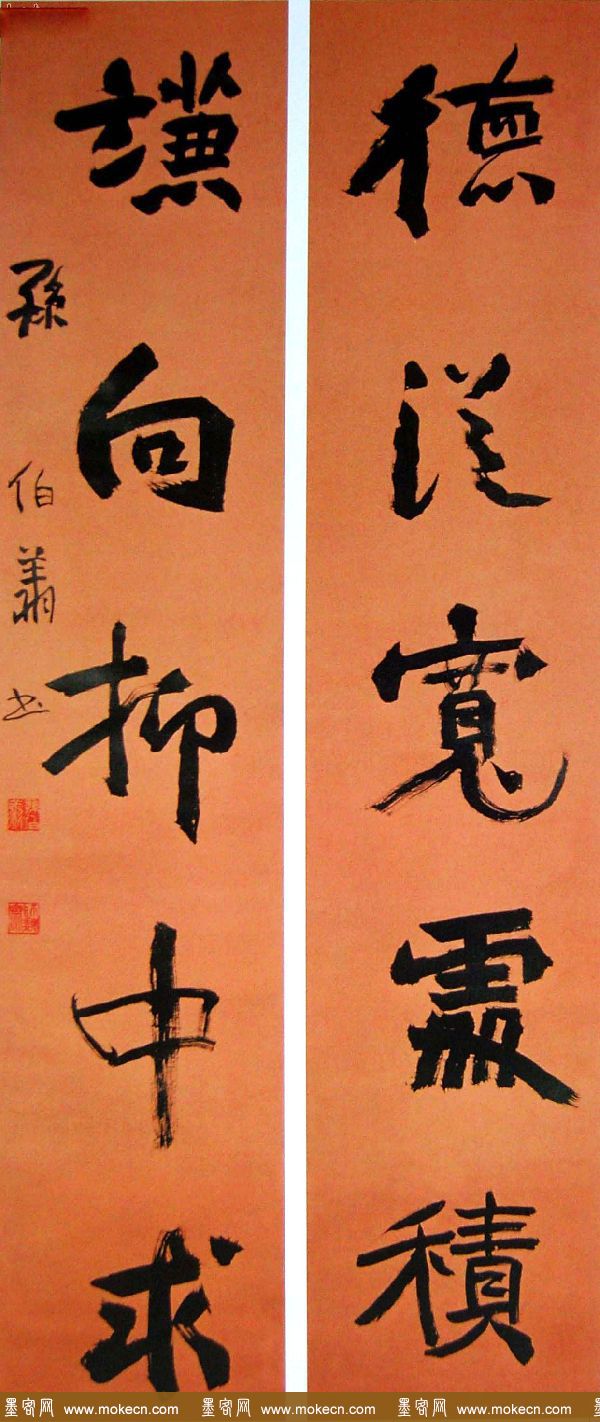 德從寬處積
謙向抑中求
孫伯翔書
墨客网 www.mokecn.com 墨客网 www.mokecn.com 墨客网 www.mokecn.com